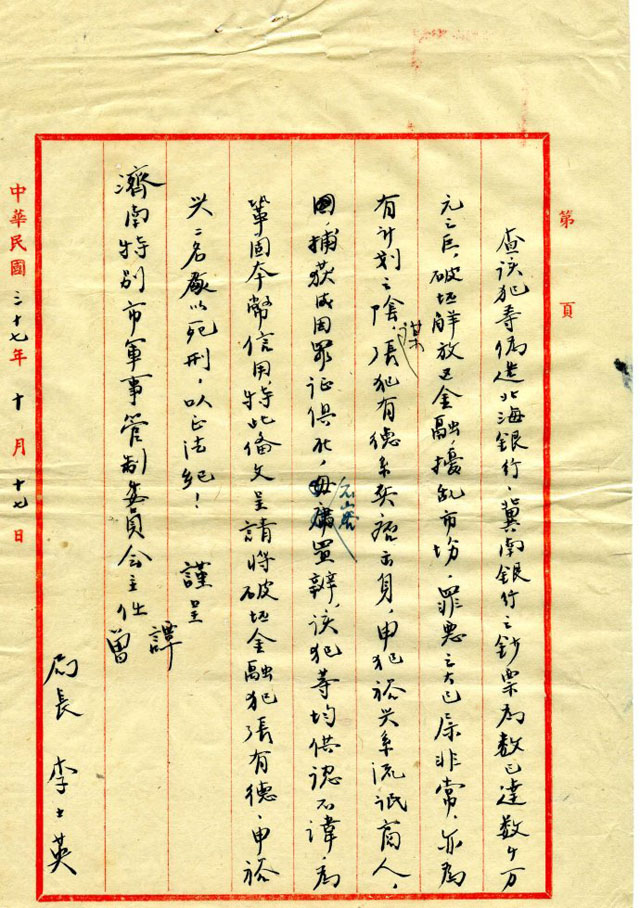 第 頁
查该犯等偽造北海銀行、冀南銀行之鈔票為数已達数千万
元之巨，破坯解放区金融，擾乱市场，罪惡之大已属非常，亦為
有计划之陰謀，張犯有德系兵痞出身，申犯裕兴系流氓商人，
捕获成因罪证俱在，不容置辨，该犯等均供認不諱，為
鞏固本幣信用特此俻文呈請将破坯金融犯張有德、申裕
兴二名处以死刑，以正法纪！ 謹呈
濟南特别市軍事管制委員会主任 譚 曾
局長 李士英
中華民國三十七年十月十七日